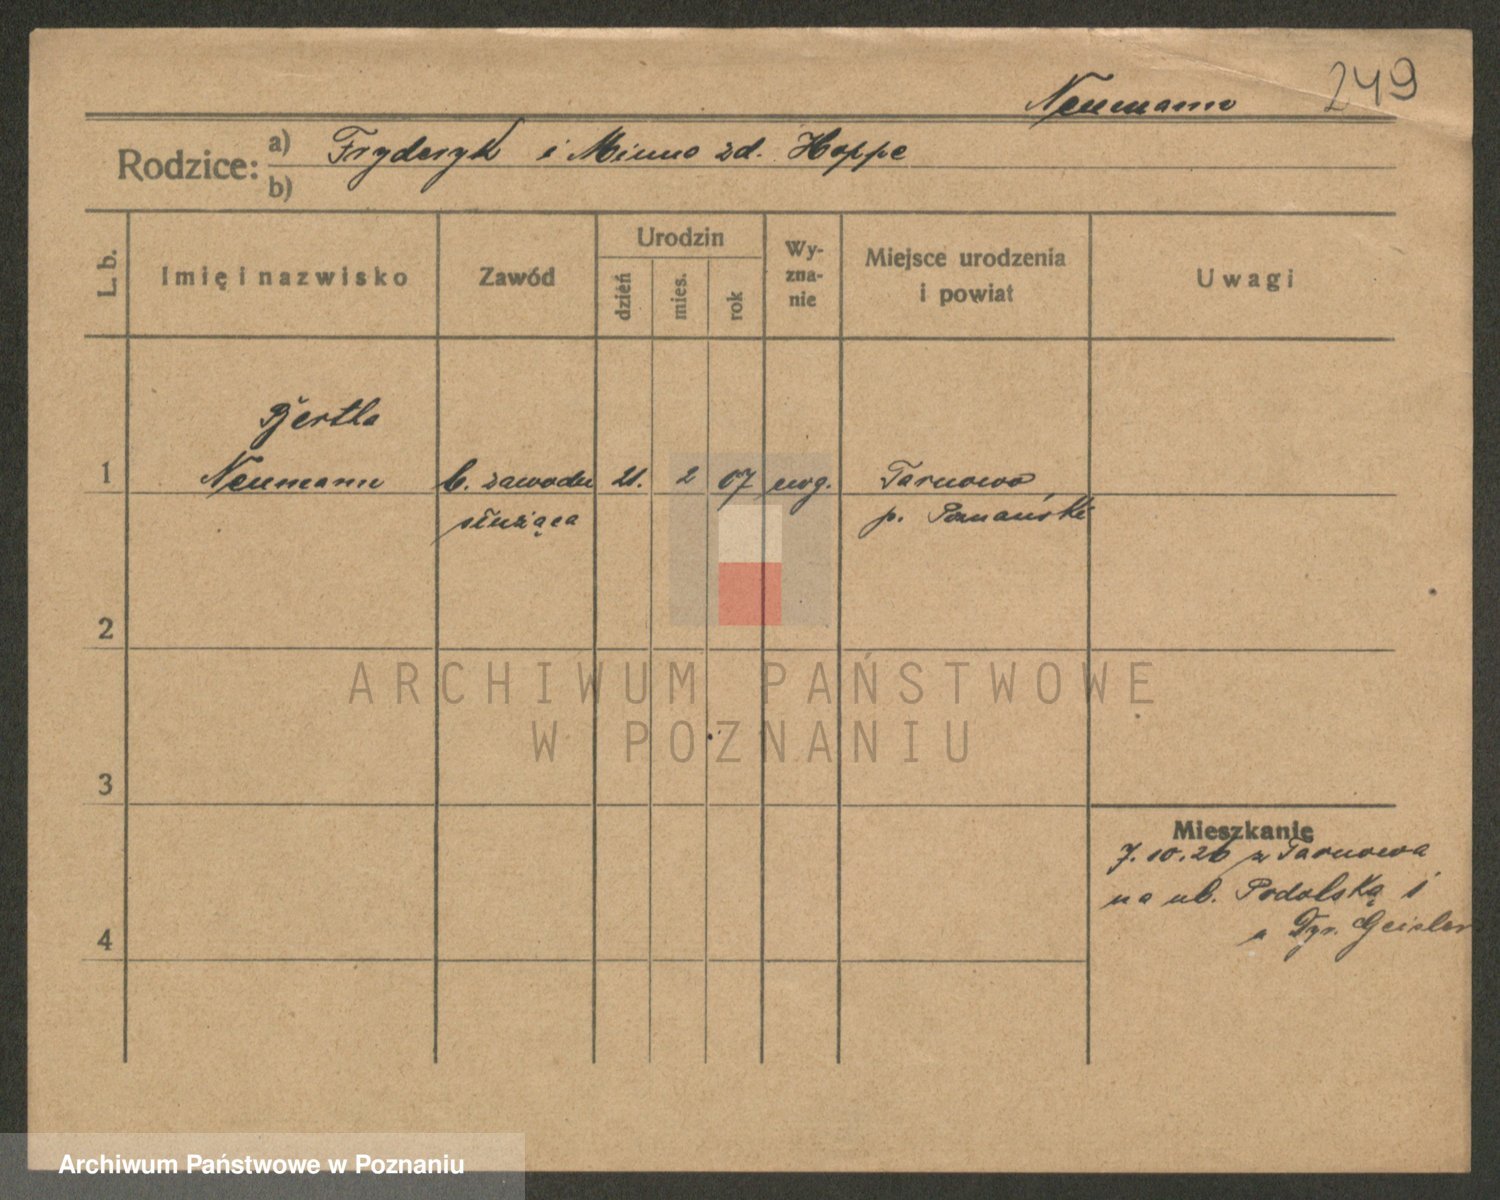 249
Neumann
Rodzice: a) Fryderyk i Minna zd. Hoppe
b)
L. b.
Imię i nazwisko
Zawód
Urodzin
dzień
mies.
rok
Wy-
zna-
nie
Miejsce urodzenia
i powiat
Uwagi
Bertha
1 Neumann b. zawodu 21. 2 07 ewg. Tarnowo
służąca p. Poznański
2
ARCHIWUM PAŃSTWOWE
W POZNANIU
3
Mieszkanie
7.10.26 z Tarnowa
na ul. Podolską
Geisler
4
Archiwum Państwowe w Poznaniu